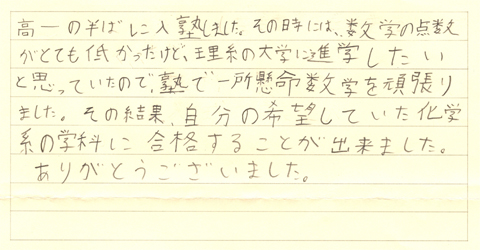 高一の半ばに入塾しました。その時には、数学の点数
がとても低かったけど、理系の大学に進学したい
と思っていたので、塾で一所懸命数学を頑張り
ました。その結果、自分の希望していた化学
系の学科に合格することが出来ました。
ありがとうございました。